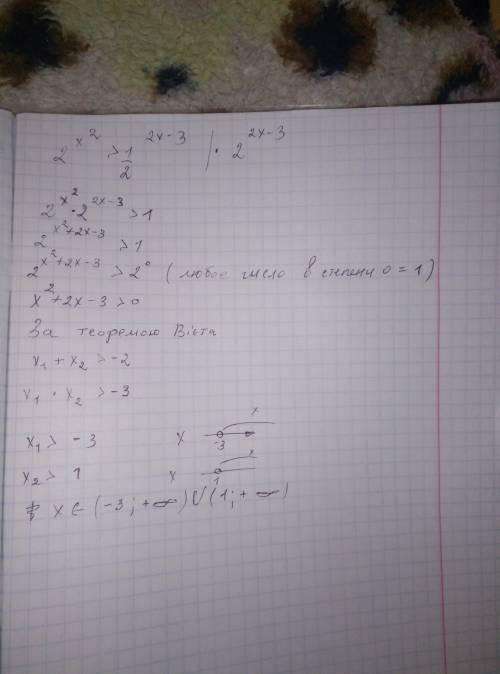 2^{x^2} > \frac{1}{2}^{2x-3} | · 2^{2x-3}
2^{x^2} · 2^{2x-3} > 1
2^{x^2+2x-3} > 1
2^{x^2+2x-3} > 2^0 (любое число в степени 0 = 1)
x^2+2x-3 > 0
За теоремою Вієта
x_1 + x_2 > -2
x_1 · x_2 > -3
x_1 > -3 x -3 x
x_2 > 1 x 1 x
x ∈ (-3; +∞) U (1; +∞)